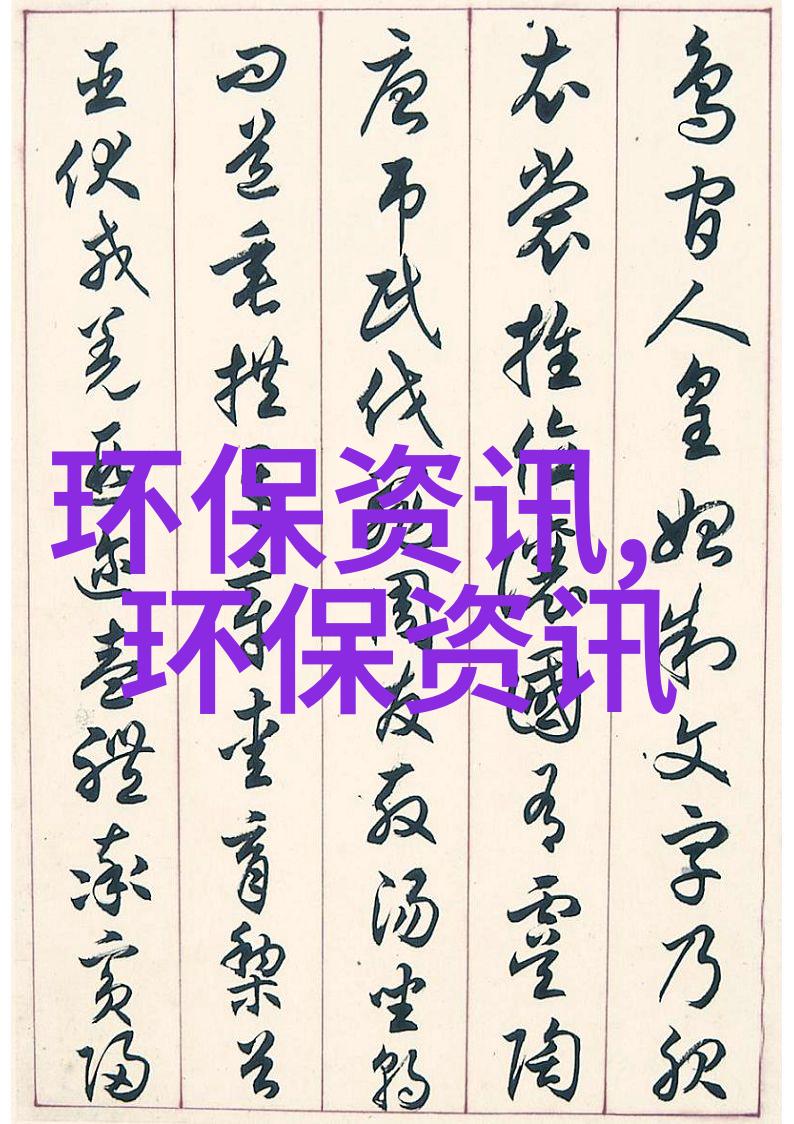 鳥官人皇始制文字乃服
衣裳推位讓國有虞陶
唐吊民伐罪周發殷湯坐朝
問道垂拱平章愛育黎首
臣伏戎羌遐邇壹體率賓歸
环保资讯,
环保资讯